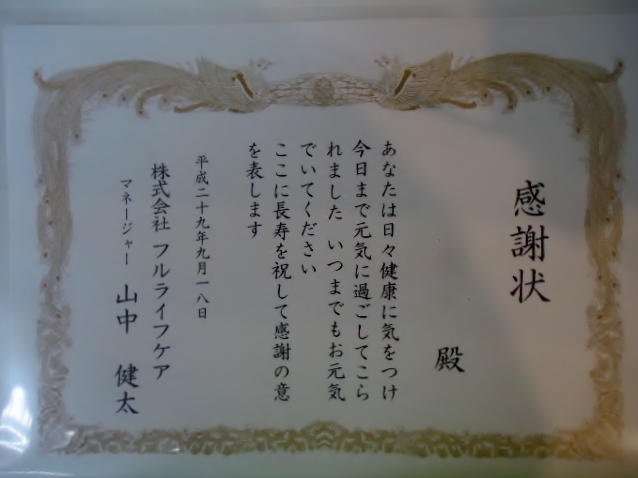 感謝状
殿
あなたは日々健康に気をつけ
今日まで元気に過ごしてこら
れました いつまでもお元気
でいてください
ここに長寿を祝して感謝の意
を表します
平成二十九年九月一八日
株式会社 フルライフケア
マネージャー 山中 健太